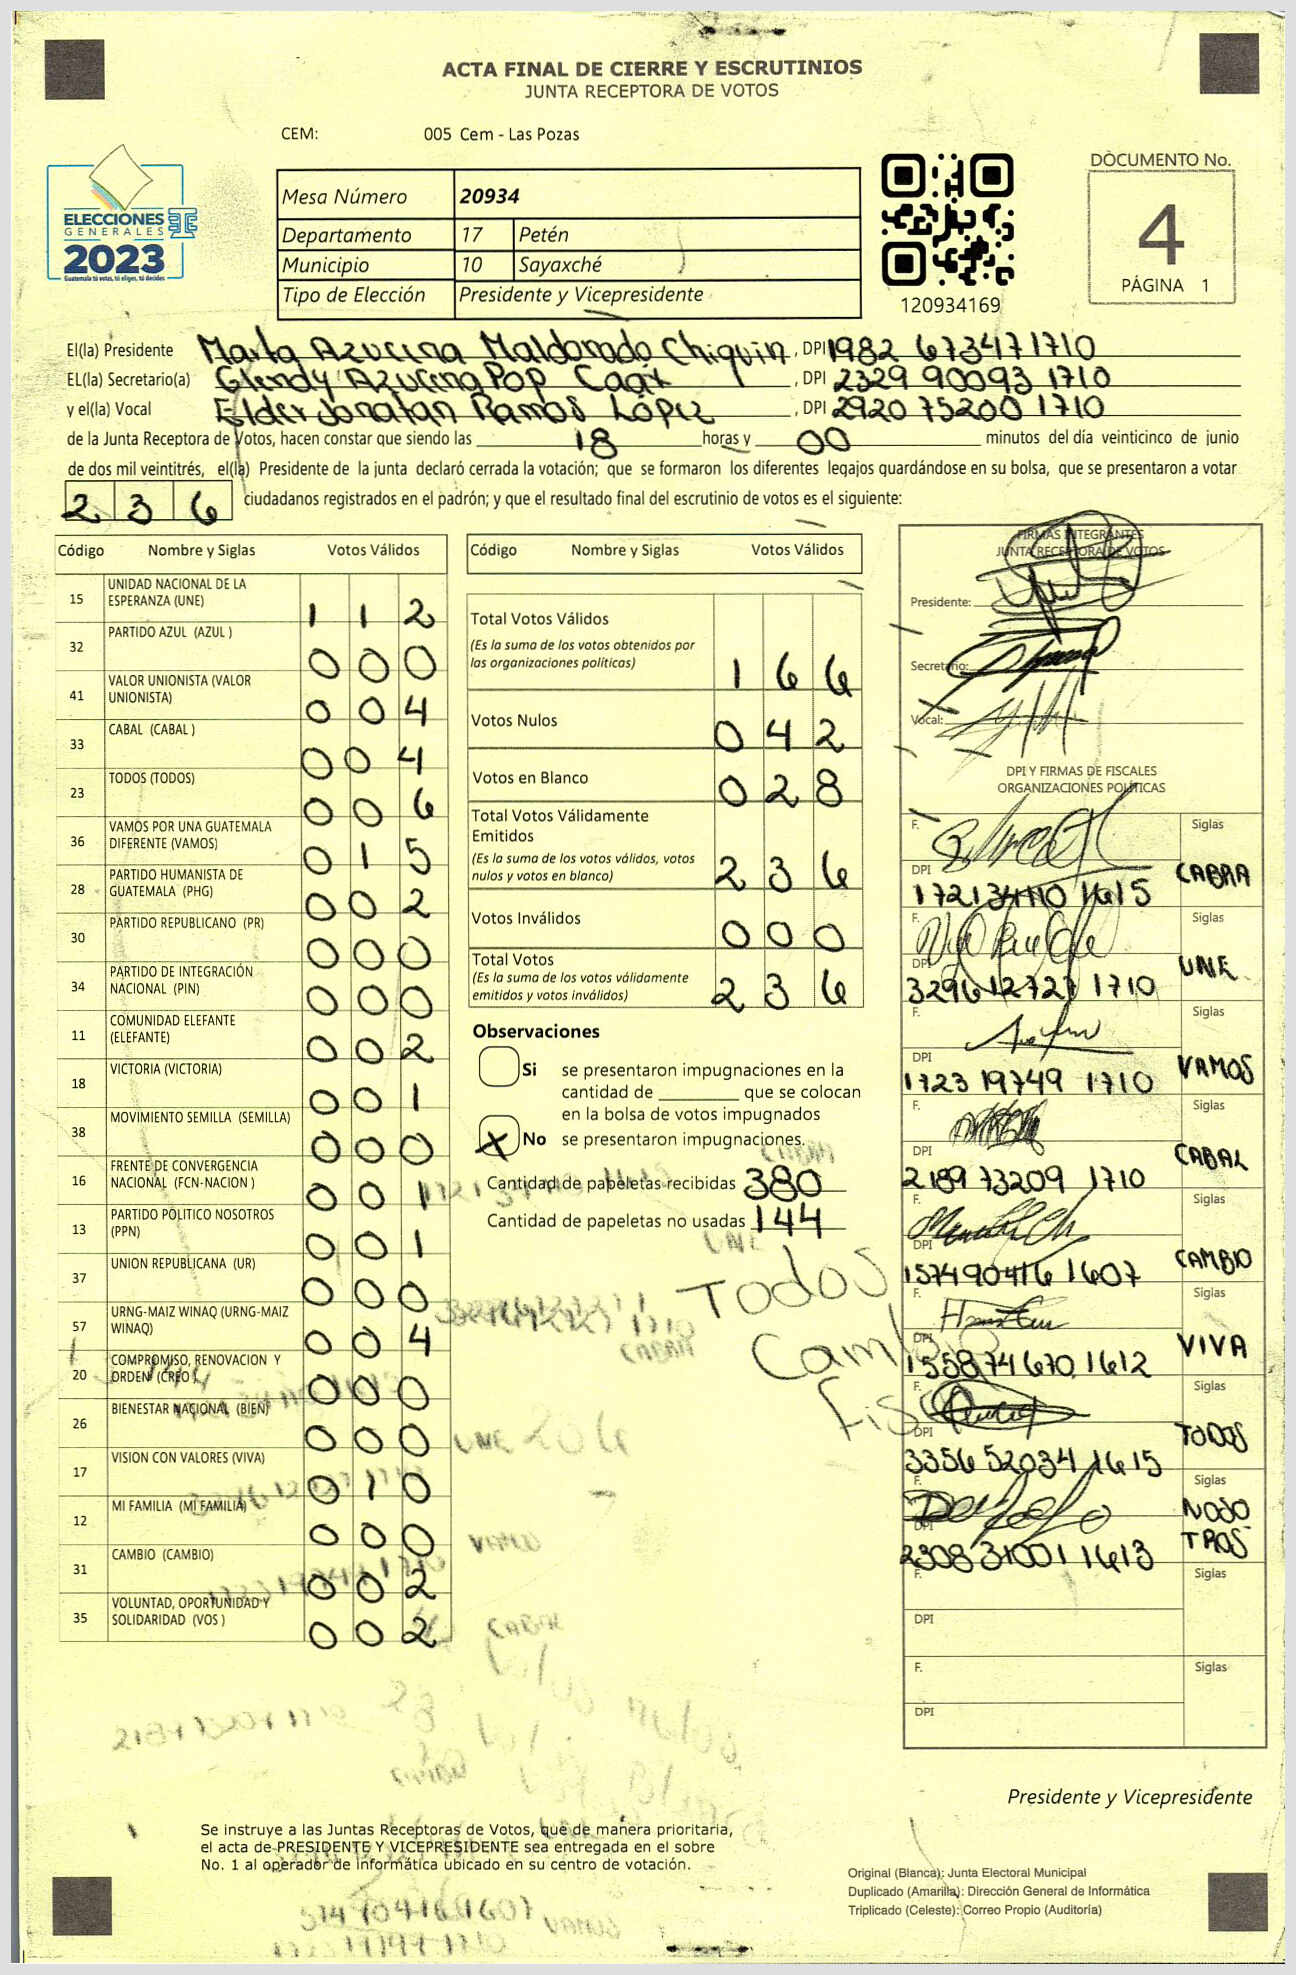 ACTA FINAL DE CIERRE Y ESCRUTINIOS
JUNTA RECEPTORA DE VOTOS
CEM: 005 Cem - Las Pozas
ELECCIONES
GENERALES
2023
Guatemala tú votas, tú eliges, tú decides
Mesa Número 20934
Departamento 17 Petén
Municipio 10 Sayaxché
Tipo de Elección Presidente y Vicepresidente
120934169
DOCUMENTO No.
4
PÁGINA 1
El(la) Presidente Marta Azucena Maldonado Chiquin, DPI 1982 67347 1710
EL(la) Secretario(a) Glendy Azucena Pop Caal, DPI 2329 90093 1710
y el(la) Vocal Elder Jonatan Ramos López, DPI 2920 75200 1710
de la Junta Receptora de Votos, hacen constar que siendo las 18 horas y 00 minutos del día veinticinco de junio
de dos mil veintitrés, el(la) Presidente de la junta declaró cerrada la votación; que se formaron los diferentes legajos guardándose en su bolsa, que se presentaron a votar
2 3 6 ciudadanos registrados en el padrón; y que el resultado final del escrutinio de votos es el siguiente:
Código Nombre y Siglas Votos Válidos
15 UNIDAD NACIONAL DE LA ESPERANZA (UNE) 1 1 2
32 PARTIDO AZUL (AZUL ) 0 0 0
41 VALOR UNIONISTA (VALOR UNIONISTA) 0 0 4
33 CABAL (CABAL ) 0 0 4
23 TODOS (TODOS) 0 0 6
36 VAMOS POR UNA GUATEMALA DIFERENTE (VAMOS) 0 1 5
28 PARTIDO HUMANISTA DE GUATEMALA (PHG) 0 0 2
30 PARTIDO REPUBLICANO (PR) 0 0 0
34 PARTIDO DE INTEGRACIÓN NACIONAL (PIN) 0 0 0
11 COMUNIDAD ELEFANTE (ELEFANTE) 0 0 2
18 VICTORIA (VICTORIA) 0 0 1
38 MOVIMIENTO SEMILLA (SEMILLA) 0 0 0
16 FRENTE DE CONVERGENCIA NACIONAL (FCN-NACION ) 0 0 1
13 PARTIDO POLITICO NOSOTROS (PPN) 0 0 1
37 UNION REPUBLICANA (UR) 0 0 0
57 URNG-MAIZ WINAQ (URNG-MAIZ WINAQ) 0 0 4
20 COMPROMISO, RENOVACION Y ORDEN (CREO ) 0 0 0
26 BIENESTAR NACIONAL (BIEN) 0 0 0
17 VISION CON VALORES (VIVA) 0 1 0
12 MI FAMILIA (MI FAMILIA) 0 0 0
31 CAMBIO (CAMBIO) 0 0 2
35 VOLUNTAD, OPORTUNIDAD Y SOLIDARIDAD (VOS ) 0 0 2
Código Nombre y Siglas Votos Válidos
Total Votos Válidos
(Es la suma de los votos obtenidos por
las organizaciones políticas) 1 6 6
Votos Nulos 0 4 2
Votos en Blanco 0 2 8
Total Votos Válidamente
Emitidos
(Es la suma de los votos válidos, votos
nulos y votos en blanco) 2 3 6
Votos Inválidos 0 0 0
Total Votos
(Es la suma de los votos válidamente
emitidos y votos inválidos) 2 3 6
Observaciones
Si se presentaron impugnaciones en la
cantidad de ________ que se colocan
en la bolsa de votos impugnados
X No se presentaron impugnaciones.
Cantidad de papeletas recibidas 380
Cantidad de papeletas no usadas 144
Todos
FIRMAS INTEGRANTES
JUNTA RECEPTORA DE VOTOS
Presidente:
Secretario:
Vocal:
DPI Y FIRMAS DE FISCALES
ORGANIZACIONES POLÍTICAS
F. Siglas
DPI 1615 CABRA
F. Siglas
DPI 3296 12727 1710 UNE
F. Siglas
DPI 1723 19749 1710 VAMOS
F. Siglas
DPI 2189 73209 1710 CABAL
F. Siglas
DPI 1574 90416 1607 CAMBIO
F. Siglas
DPI 1558 74670 1612 VIVA
F. Siglas
DPI 3356 52034 1615 TODOS
F. Siglas
DPI 2308 31001 1613 NOSO
TROS
F. Siglas
DPI
F. Siglas
DPI
Presidente y Vicepresidente
Se instruye a las Juntas Receptoras de Votos, que de manera prioritaria,
el acta de PRESIDENTE Y VICEPRESIDENTE sea entregada en el sobre
No. 1 al operador de informática ubicado en su centro de votación.
Original (Blanca): Junta Electoral Municipal
Duplicado (Amarilla): Dirección General de Informática
Triplicado (Celeste): Correo Propio (Auditoría)